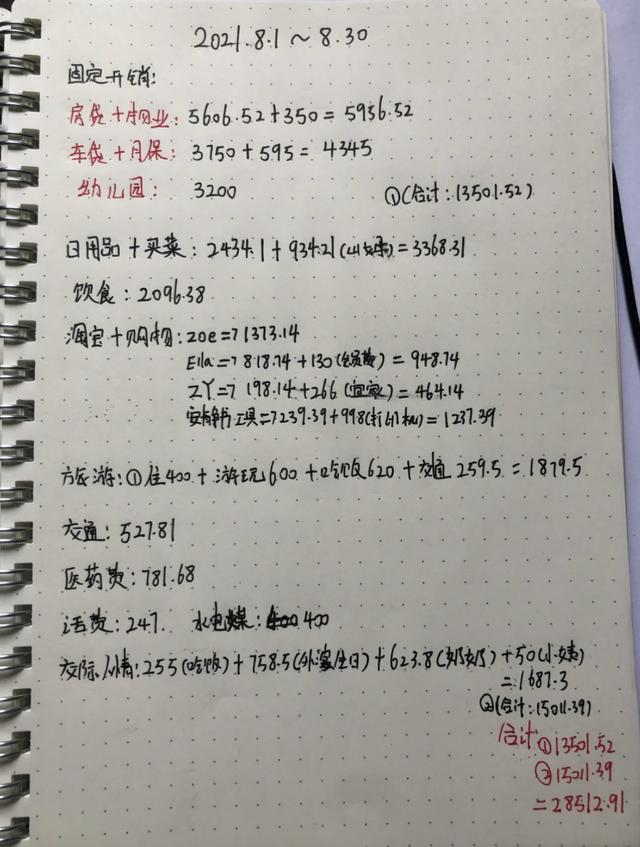 2021.8.1～8.30
固定开销：
房贷+物业：5606.52+350=5956.52
车贷+月保：3750+595=4345
幼儿园：3200 ①(合计：13501.52)
日用品+买菜：2434.1+934.21(山姆)=3368.31
饮食：2096.38
淘宝+购物：zoe=71373.14
Ella=7818.74+130(会员费)=948.74
ZY=7198.14+266(宜家)=464.14
工具=7239.39+998(打印机)=1237.39
旅游：①住400+游玩600+吃饭620+交通259.5=1879.5
交通：527.81
医药费：781.68
话费：247. 水电煤：400
交际人情：255(吃饭)+758.5(外婆生日)+623.8(奶奶)+50(小妹)
=1687.3
②(合计：15011.39)
合计①13501.52
②15011.39
=28512.91